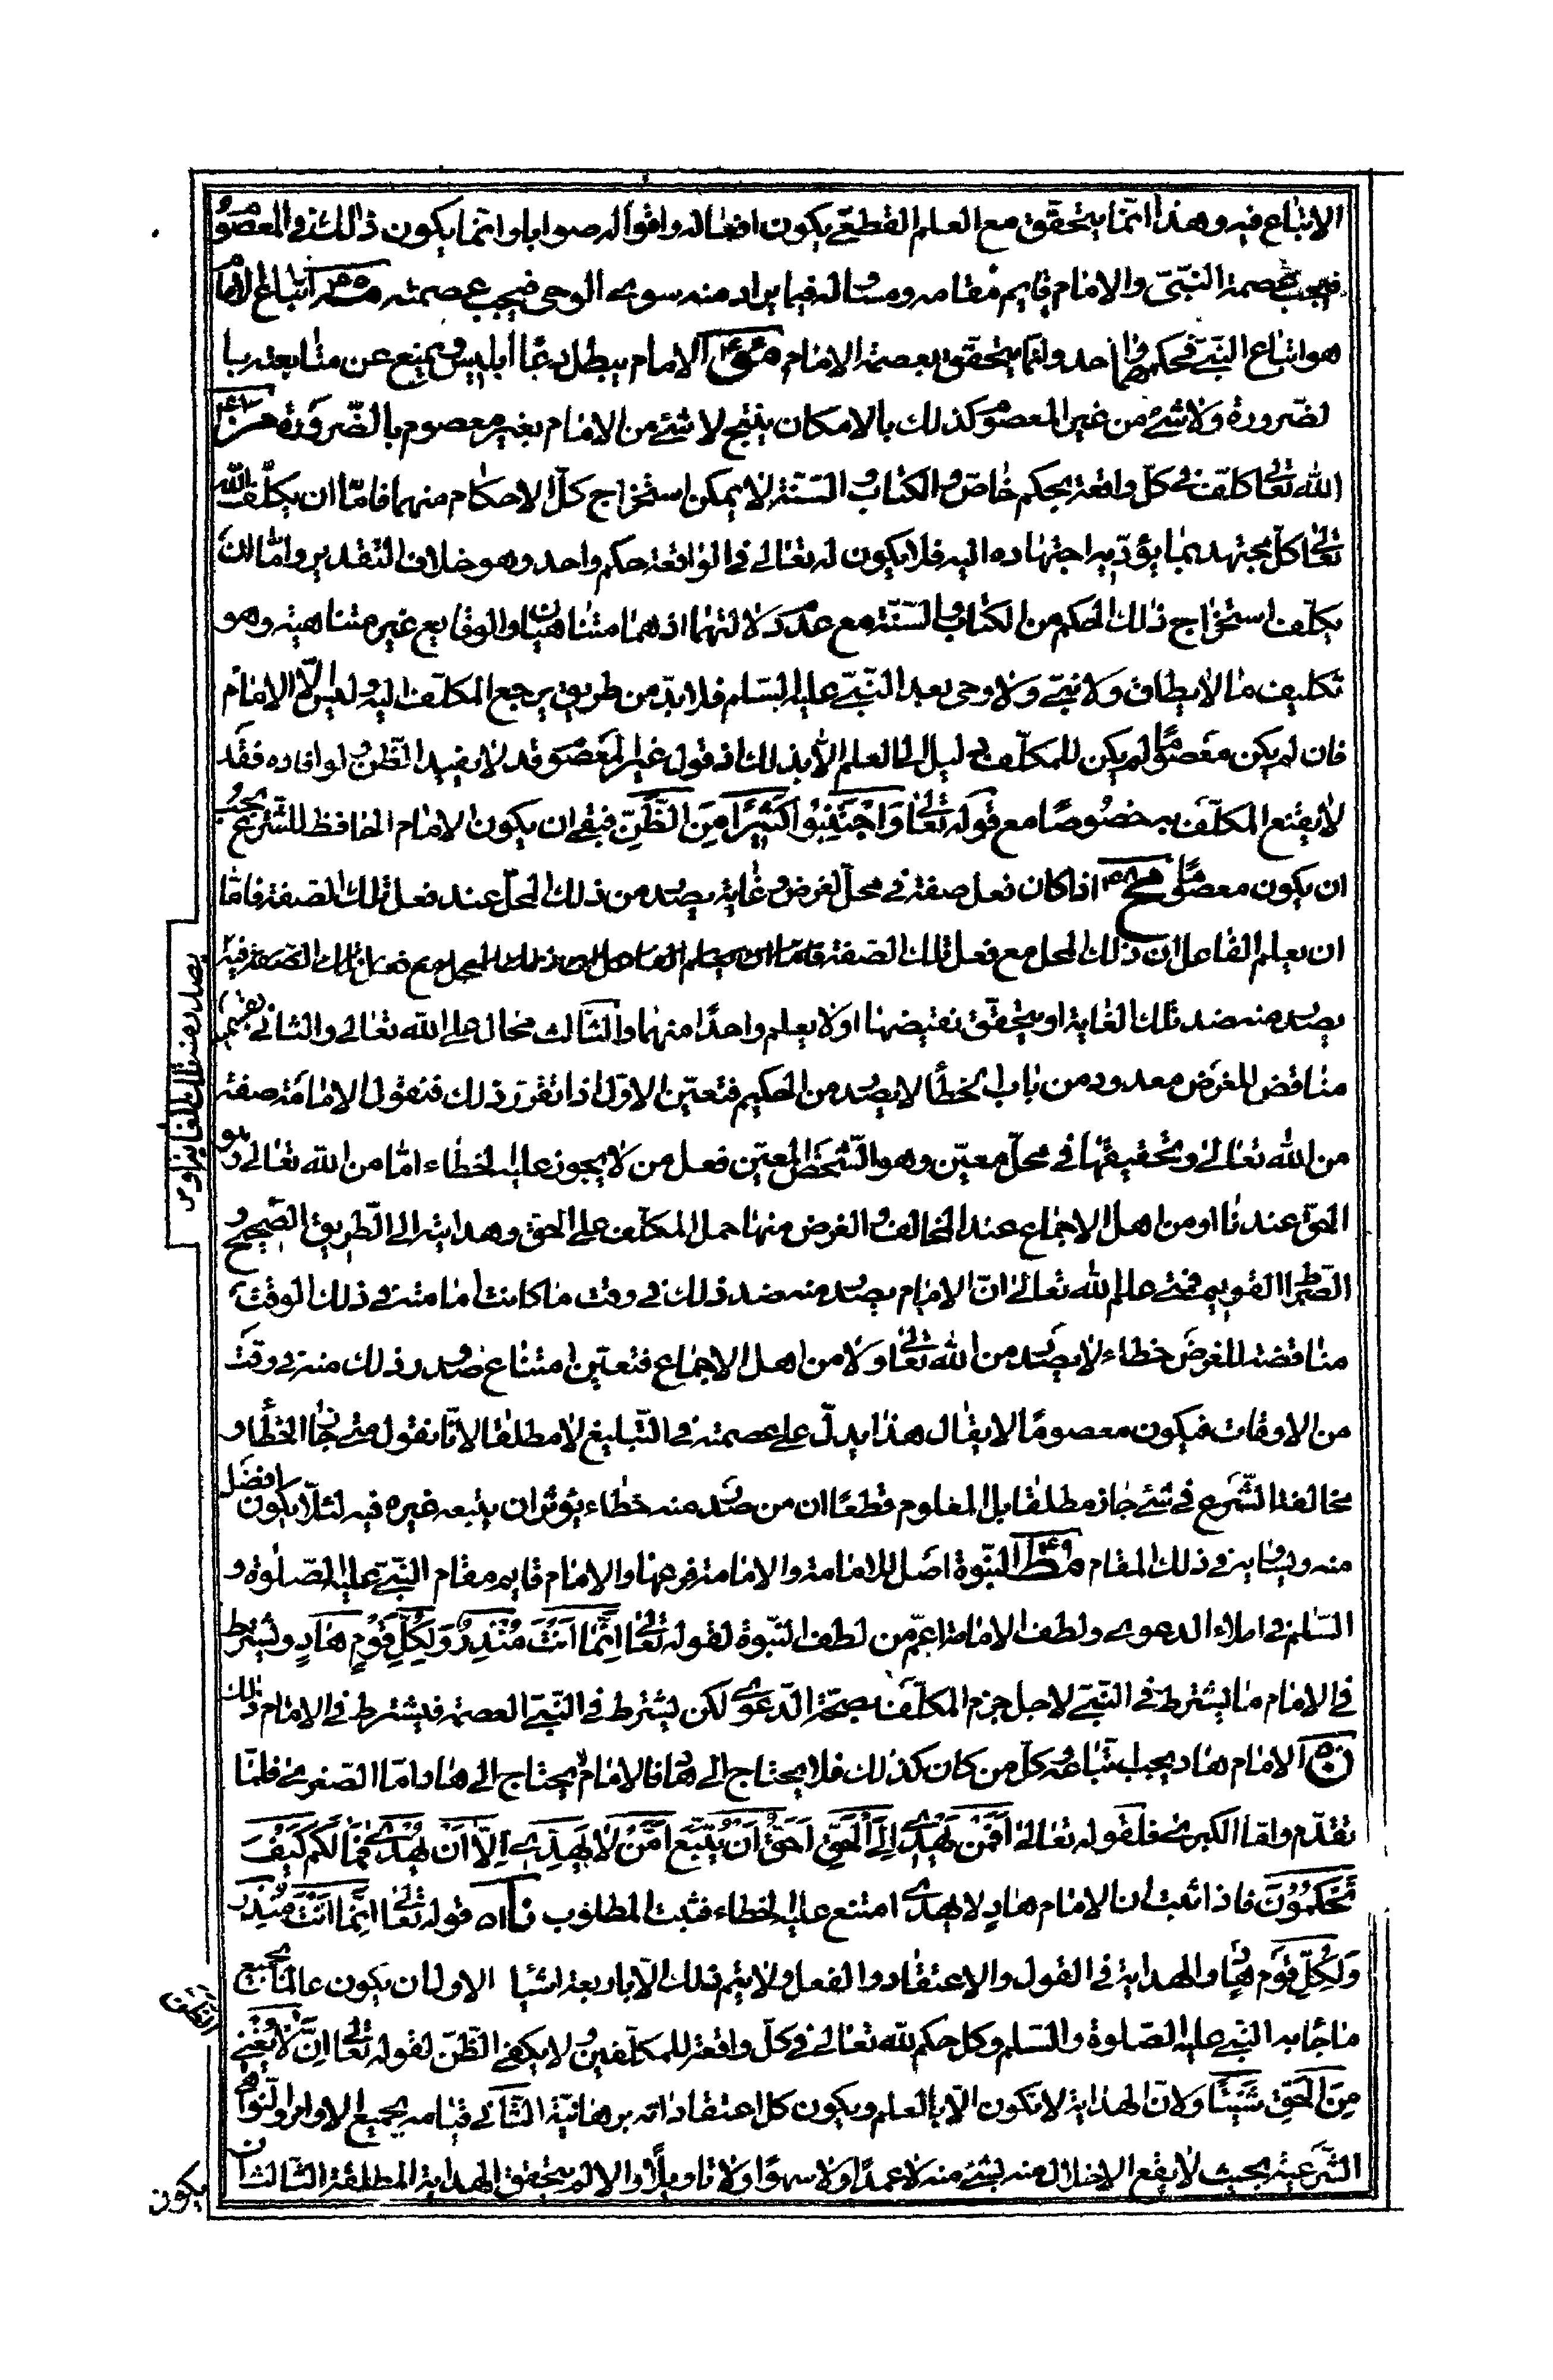 الاتباع فيه وهذا انّما يتحقّق مع العلم القطعيّ بكون افعاله واقواله صوابا وانّما يكون ذلك في المعصوم
فيجب عصمة النبّيّ والامام قايم مقامه ومساو له فيما يراد منه سوى الوحى فيجب عصمته مه اتّباع الامام
هو اتباع النّبيّ فحكمهما واحد وانّما يتحقق بعصمة الامام مو الامام يبطل دعاء ابليس ويمنع عن متابعته با
لضّرورة ولا شئ من غير المعصوم كذلك بالامكان ينتج لا شئ من الامام بغير معصوم بالضّرورة مز
الله تعالى كلّف في كلّ واقعة بحكم خاصّ والكتاب والسّنّة لا يمكن استخراج كلّ الاحكام منهما فامّا ان يكلّف الله
تعالى كلّ مجتهد بما يؤدّيه اجتهاده اليه فلا يكون له تعالى في الواقعة حكم واحد وهو خلاف التقدير وامّا ان
يكلّف استخراج ذلك الحكم من الكتاب والسّنّة مع عدم دلالتهما اذ هما متناهيان والوقايع غير متناهية وهو
تكليف ما لا يطاق ولا نبيّ ولا وحى بعد النّبيّ عليه السّلم فلا بدّ من طريق يرجع المكلّف اليه وليس الّا الامام
فان لم يكن معصومًا لم يكن للمكلّف سبيل الى العلم الّا بذلك اذ قول غير المعصوم قد لا يفيد الظّن ولو افاده فقد
لا يقنع المكلّف به خصوصًا مع قوله تعالى وَاجْتَنِبُوا كَثِيرًا مِنَ الظَّنِّ فبقى ان يكون الامام الحافظ للشّرع يجب
ان يكون معصومًا مح اذا كان فعل صفة في محلّ لغرض وغاية يصدر من ذلك المحلّ عند فعل تلك الصفة فامّا
ان يعلم الفاعل ان ذلك المحل مع فعل تلك الصفة
يصدر منه ضد تلك الغاية او يتحقّق نقيضها او لا يعلم واحدًا منهما والثالث محال على الله تعالى والثانى
مناقض للغرض معدود من باب الخطأ لا يصدر من الحكيم فتعيّن الاوّل اذا تقرر ذلك فنقول الامامة صفة
من الله تعالى وتحقيقها في محلّ معيّن وهو الشّخص المعيّن فعل من لا يجوز عليه الخطاء امّا من الله تعالى وهو
الحقّ عندنا او من اهل الاجماع عند المخالف والغرض منها حمل المكلّف على الحق وهدايته الى الطّريق الصّحيح و
الصّراط القويم فمتى علم الله تعالى انّ الامام يصدر منه ضد ذلك في وقت ما كانت امامته في ذلك الوقت
مناقضة للغرض خطاء لا يصدر من الله تعالى ولا من اهل الاجماع فتعيّن امتناع صدور ذلك منه في وقت
من الاوقات فيكون معصومًا لا يقال هذا يدلّ على عصمته في التّبليغ لا مطلقا لانّا نقول متى جاز الخطأ و
مخالفة الشّرع في شئ جاز مطلقا بل المعلوم قطعًا ان من صدر منه خطاء يؤثر ان يتبعه غيره فيه لئلّا يكون افضل
منه ويشابه في ذلك المقام مط النّبوة اصل للامامة والامامة فرعها والامام قايم مقام النّبيّ عليه الصّلوة و
السّلم في املاء الدعوى ولطف الامامة اعمّ من لطف النبّوة لقوله تعالى اِنَّمَا اَنْتَ مُنْذِرٌ وَلِكُلِّ قَوْمٍ هَادٍ ويشترط
في الامام ما يشترط في النّبيّ لاجل جزم المكلّف بصحّة الدّعوى لكن يشترط في النّبيّ العصمة فيشترط في الامام ذلك
ن الامام هاد يجب اتّباعه وكلّ من كان كذلك فلا يحتاج الى هاد فالامام لا يحتاج الى هاد امّا الصّغرى فلما
تقدّم وامّا الكبرى فلقوله تعالى اَفَمَنْ يَهْدِي اِلَى الْحَقِّ اَحَقُّ اَنْ يُتَّبَعَ اَمَّنْ لَا يَهِدِّي اِلَّا اَنْ يُهْدَى فَمَا لَكُمْ كَيْفَ
تَحْكُمُونَ فاذا ثبت ان الامام هادٍ لا يهدى امتنع عليه الخطاء فثبت المطلوب نا قوله تعالى اِنَّمَا اَنْتَ مُنْذِرٌ
وَلِكُلِّ قَوْمٍ هَادٍ والهداية في القول والاعتقاد والفعل ولا يتم ذلك الّا باربعة اشيا الاول ان يكون عالما بجميع
ما جاء به النّبيّ عليه الصّلوة والسّلم وكل حكم لله تعالى في كلّ واقعة للمكلّفين ولا يكفى الظّنّ لقوله تعالى اِنَّ الظن لَا يُغْنِي
مِنَ الْحَقِّ شَيْئًا ولانّ الهداية لا تكون الّا بالعلم ويكون كل اعتقاداته برهانيّة الثّانى قيامه بجميع الاوامر والنّواهى
الشّرعيّة بحيث لا يقع الاخلال منه بشئ منه لا عمدًا ولا سهوًا ولا تاويلًا والا لم يتحقق الهداية المطلقة الثالث ان
يصدر منه تلك الغاية او
الظن
يكون